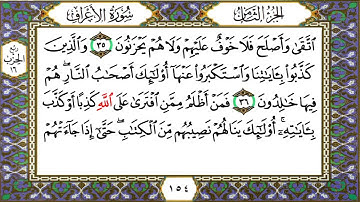 الجزء الثامن
سورة الأعراف
ربع
الحزب
١٦
ٱتَّقَىٰ وَأَصْلَحَ فَلَا خَوْفٌ عَلَيْهِمْ وَلَا هُمْ يَحْزَنُونَ ٣٥ وَٱلَّذِينَ
كَذَّبُوا۟ بِـَٔايَـٰتِنَا وَٱسْتَكْبَرُوا۟ عَنْهَآ أُو۟لَـٰٓئِكَ أَصْحَـٰبُ ٱلنَّارِ ۖ هُمْ
فِيهَا خَـٰلِدُونَ ٣٦ فَمَنْ أَظْلَمُ مِمَّنِ ٱفْتَرَىٰ عَلَى ٱللَّهِ كَذِبًا أَوْ كَذَّبَ
بِـَٔايَـٰتِهِۦٓ ۚ أُو۟لَـٰٓئِكَ يَنَالُهُمْ نَصِيبُهُم مِّنَ ٱلْكِتَـٰبِ ۖ حَتَّىٰٓ إِذَا جَآءَتْهُمْ
١٥٤